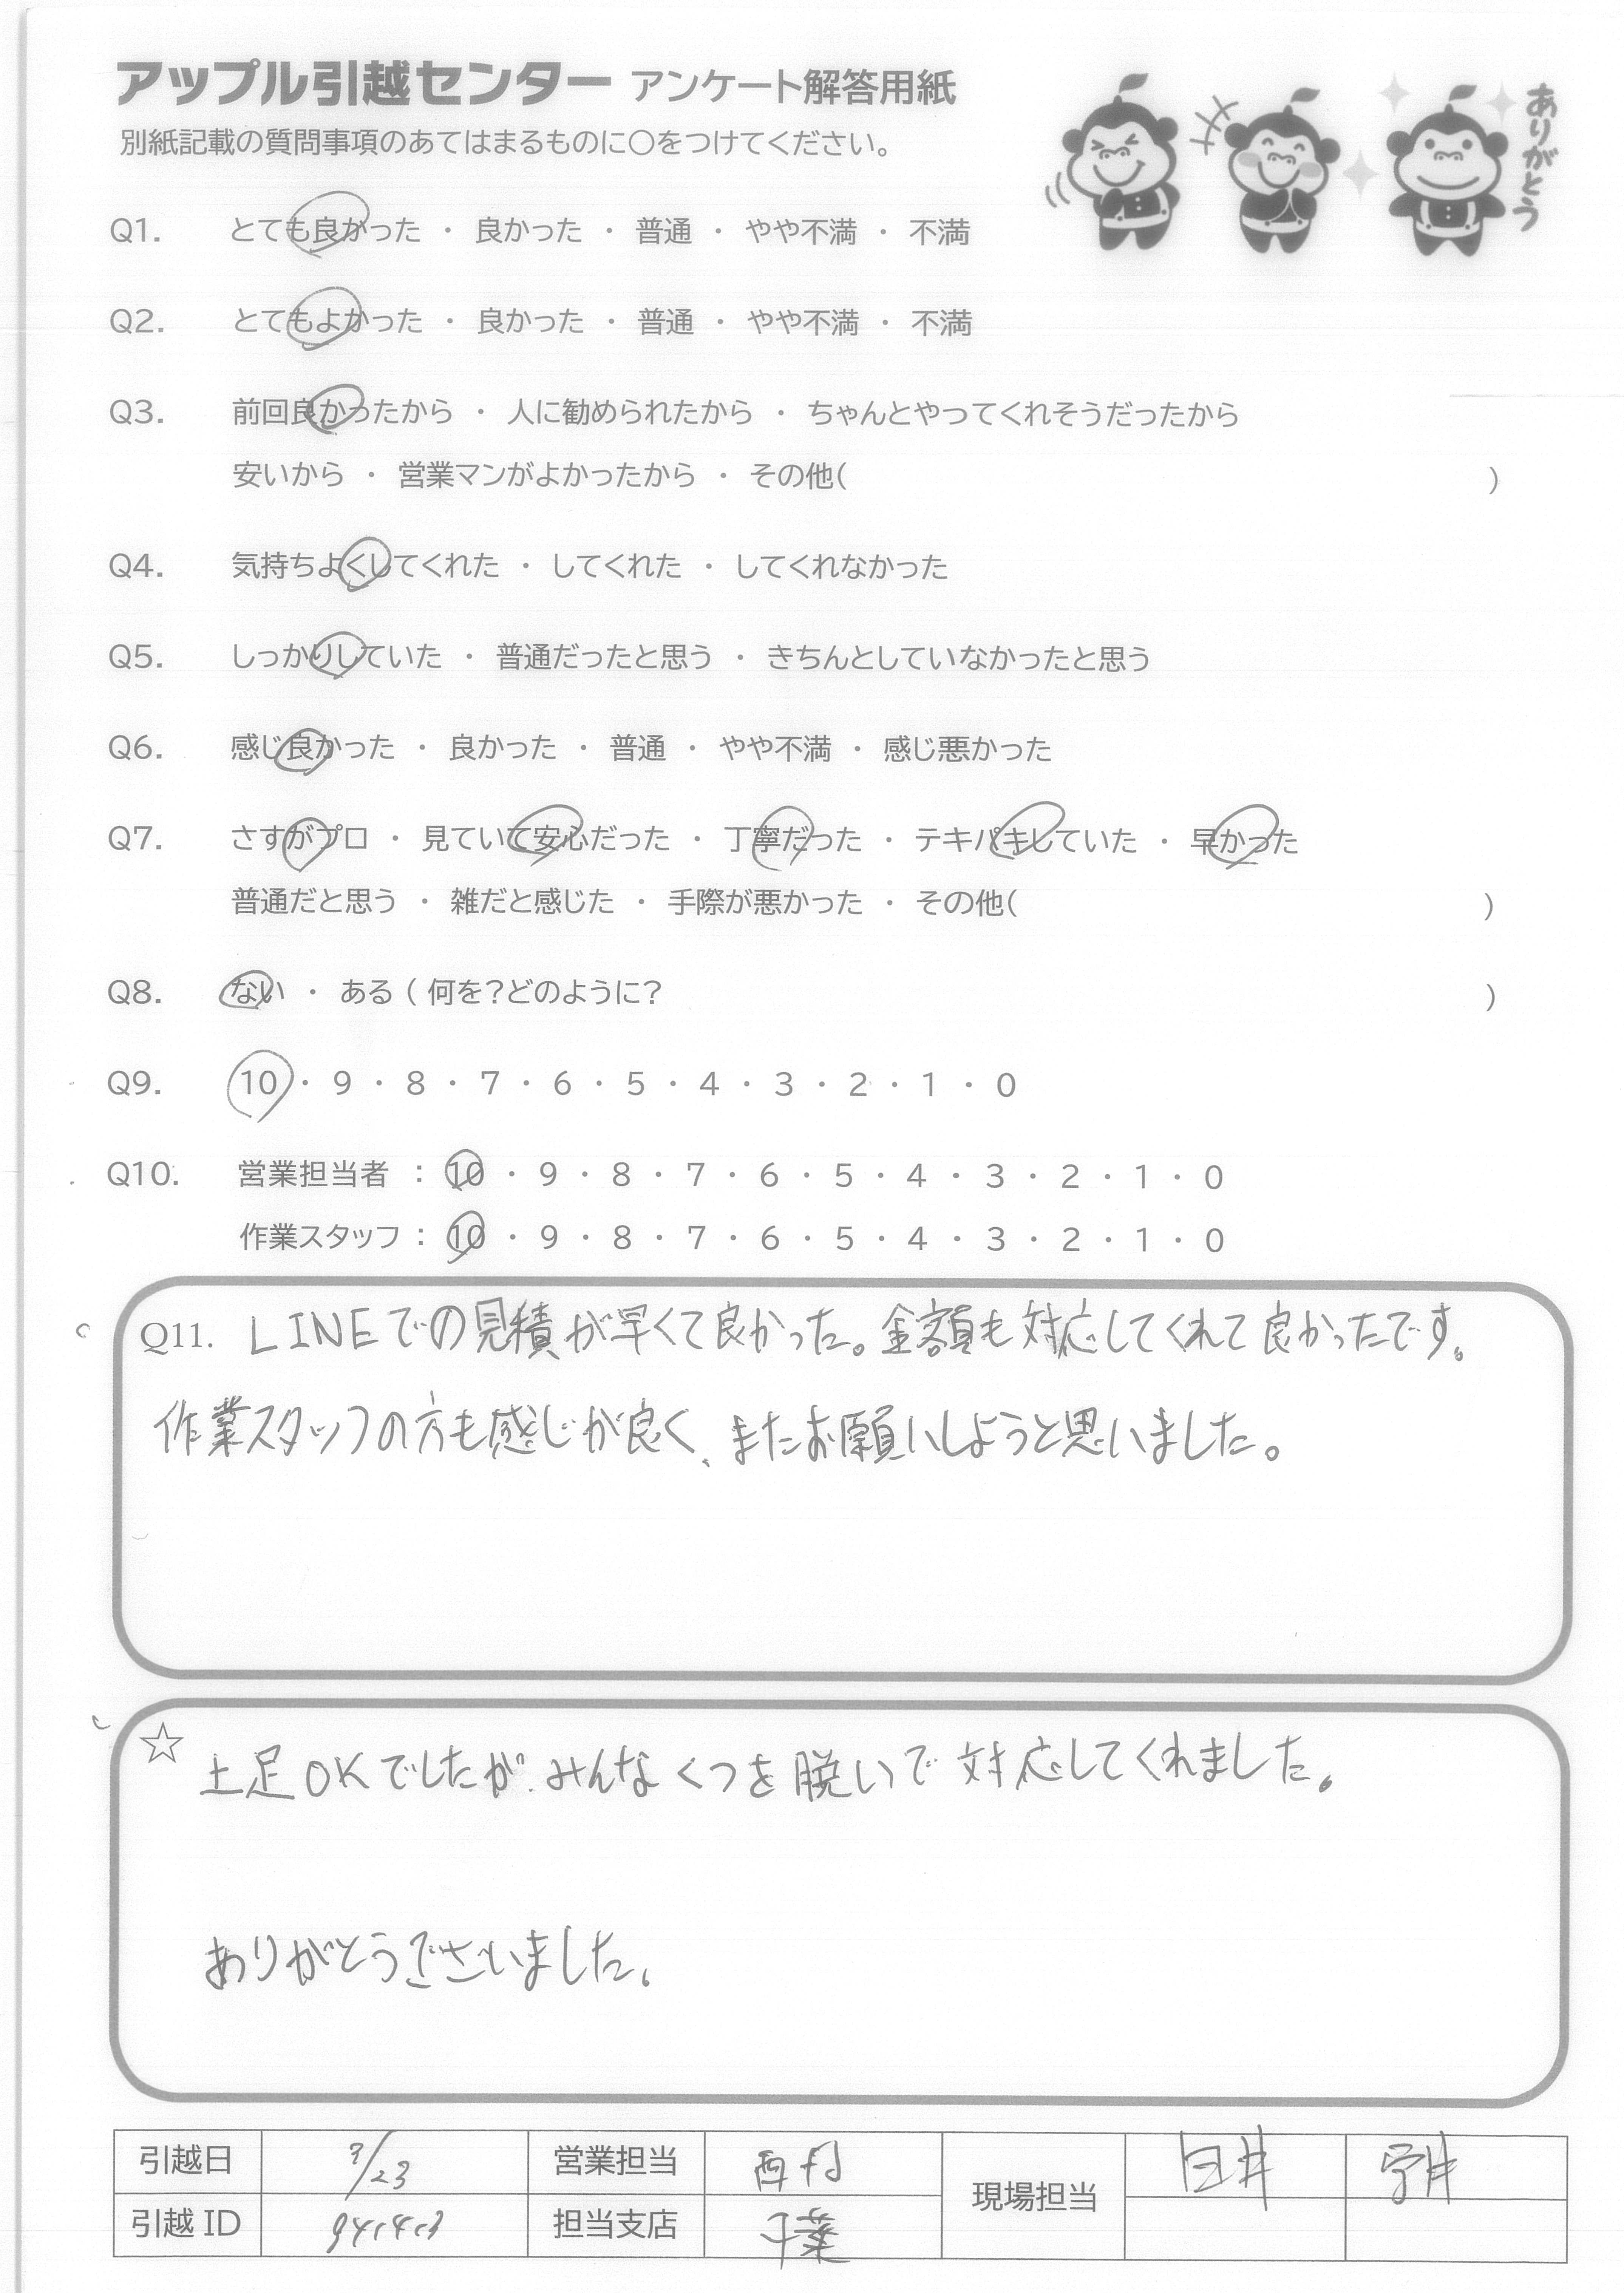 アップル引越センター アンケート解答用紙
別紙記載の質問事項のあてはまるものに○をつけてください。
ありがとう
Q1. とても良かった ・ 良かった ・ 普通 ・ やや不満 ・ 不満
Q2. とてもよかった ・ 良かった ・ 普通 ・ やや不満 ・ 不満
Q3. 前回良かったから ・ 人に勧められたから ・ ちゃんとやってくれそうだったから
安いから ・ 営業マンがよかったから ・ その他( )
Q4. 気持ちよくしてくれた ・ してくれた ・ してくれなかった
Q5. しっかりしていた ・ 普通だったと思う ・ きちんとしていなかったと思う
Q6. 感じ良かった ・ 良かった ・ 普通 ・ やや不満 ・ 感じ悪かった
Q7. さすがプロ ・ 見ていて安心だった ・ 丁寧だった ・ テキパキしていた ・ 早かった
普通だと思う ・ 雑だと感じた ・ 手際が悪かった ・ その他( )
Q8. ない ・ ある ( 何を?どのように? )
Q9. 10 ・ 9 ・ 8 ・ 7 ・ 6 ・ 5 ・ 4 ・ 3 ・ 2 ・ 1 ・ 0
Q10. 営業担当者 : 10 ・ 9 ・ 8 ・ 7 ・ 6 ・ 5 ・ 4 ・ 3 ・ 2 ・ 1 ・ 0
作業スタッフ : 10 ・ 9 ・ 8 ・ 7 ・ 6 ・ 5 ・ 4 ・ 3 ・ 2 ・ 1 ・ 0
Q11. LINEでの見積が早くて良かった。金額も対応してくれて良かったです。
作業スタッフの方も感じが良く、またお願いしようと思いました。
☆ 土足OKでしたが、みんなくつを脱いで対応してくれました。
ありがとうございました。
引越日 営業担当 現場担当 白井
引越ID 担当支店 千葉